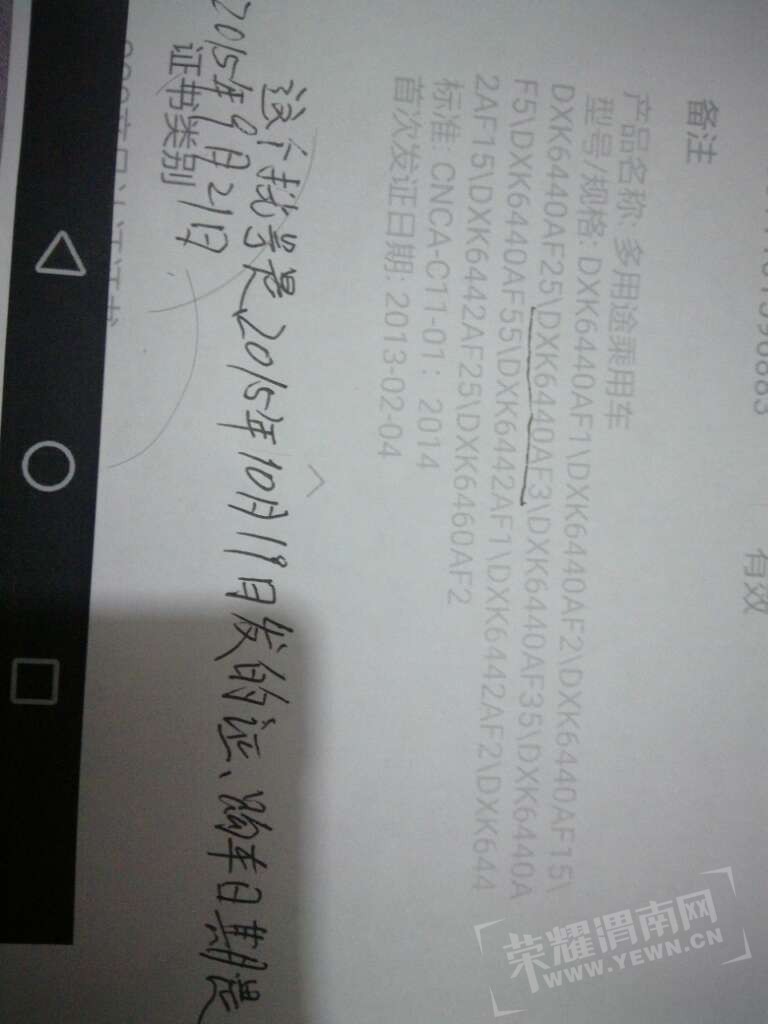 有效
备注
产品名称: 多用途乘用车
型号/规格: DXK6440AF1\DXK6440AF2\DXK6440AF15\
DXK6440AF25\DXK6440AF3\DXK6440AF35\DXK6440A
F5\DXK6440AF55\DXK6442AF1\DXK6442AF2\DXK644
2AF15\DXK6442AF25\DXK6460AF2
标准: CNCA-C11-01: 2014
首次发证日期: 2013-02-04
这个批号是2015年10月19日发的证、购车日期是
2015年9月21日
证书类别
荣耀渭南网
WWW.YEWN.CN